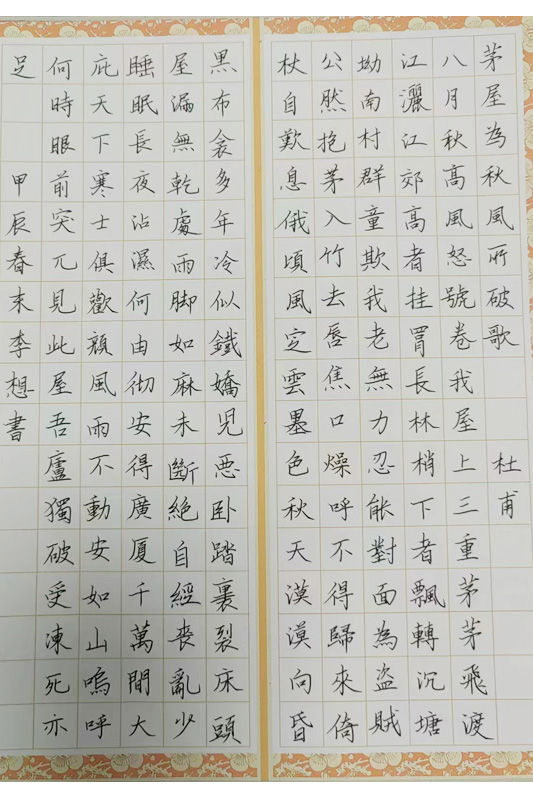 茅屋為秋風所破歌 杜甫
八月秋高風怒號卷我屋上三重茅茅飛渡
江灑江郊高者挂罥長林梢下者飄轉沉塘
坳南村群童欺我老無力忍能對面為盜賊
公然抱茅入竹去唇焦口燥呼不得歸來倚
杖自歎息俄頃風定雲墨色秋天漠漠向昏
黑布衾多年冷似鐵嬌兒惡卧踏裏裂床頭
屋漏無乾處雨脚如麻未斷絕自經喪亂少
睡眠長夜沾濕何由彻安得廣厦千萬間大
庇天下寒士俱歡顏風雨不動安如山嗚呼
何時眼前突兀見此屋吾廬獨破受凍死亦
足 甲辰春末李想書